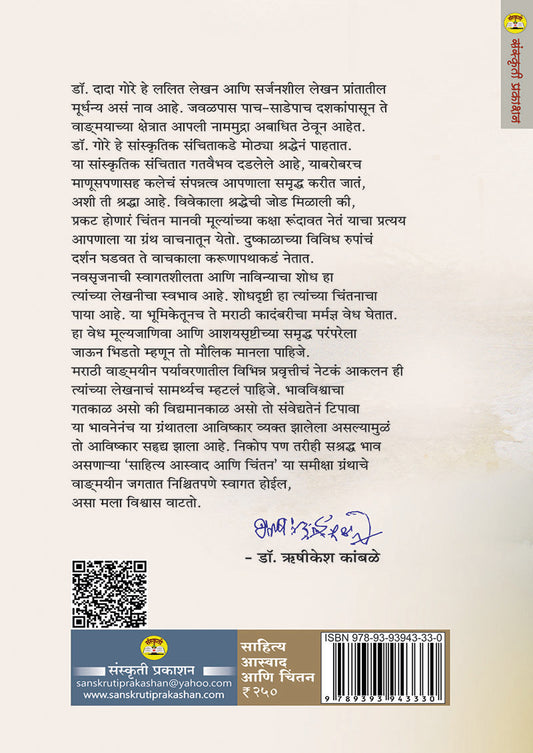 संस्कृती प्रकाशन
डॉ. दादा गोरे हे ललित लेखन आणि सर्जनशील लेखन प्रांतातील
मूर्धन्य असं नाव आहे. जवळपास पाच-साडेपाच दशकांपासून ते
वाङ्‌मयाच्या क्षेत्रात आपली नाममुद्रा अबाधित ठेवून आहेत.
डॉ. गोरे हे सांस्कृतिक संचिताकडे मोठ्या श्रद्धेनं पाहतात.
या सांस्कृतिक संचितात गतवैभव दडलेले आहे, याबरोबरच
माणूसपणासह कलेचं संपन्नत्व आपणाला समृद्ध करीत जातं,
अशी ती श्रद्धा आहे. विवेकाला श्रद्धेची जोड मिळाली की,
प्रकट होणारं चिंतन मानवी मूल्यांच्या कक्षा रूंदावत नेतं याचा प्रत्यय
आपणाला या ग्रंथ वाचनातून येतो. दुष्काळाच्या विविध रुपांचं
दर्शन घडवत ते वाचकाला करूणापथाकडं नेतात.
नवसृजनाची स्वागतशीलता आणि नाविन्याचा शोध हा
त्यांच्या लेखनीचा स्वभाव आहे. शोधदृष्टी हा त्यांच्या चिंतनाचा
पाया आहे. या भूमिकेतूनच ते मराठी कादंबरीचा मर्मज्ञ वेध घेतात.
हा वेध मूल्यजाणिवा आणि आशयसृष्टीच्या समृद्ध परंपरेला
जाऊन भिडतो म्हणून तो मौलिक मानला पाहिजे.
मराठी वाङ्‌मयीन पर्यावरणातील विभिन्न प्रवृत्तीचं नेटकं आकलन ही
त्यांच्या लेखनाचं सामर्थ्यच म्हटलं पाहिजे. भावविश्वाचा
गतकाळ असो की विद्यमानकाळ असो तो संवेद्यतेनं टिपावा
या भावनेनंच या ग्रंथातला आविष्कार व्यक्त झालेला असल्यामुळं
तो आविष्कार सहृद्य झाला आहे. निकोप पण तरीही सश्रद्ध भाव
असणाऱ्या ‘साहित्य आस्वाद आणि चिंतन’ या समीक्षा ग्रंथाचे
वाङ्‌मयीन जगतात निश्चितपणे स्वागत होईल,
असा मला विश्वास वाटतो.
- डॉ. ऋषीकेश कांबळे
संस्कृती प्रकाशन
sanskrutiprakashan@yahoo.com
www.sanskrutiprakashan.com
साहित्य
आस्वाद
आणि चिंतन
₹ २५०
ISBN 978-93-93943-33-0
9 789393 943330